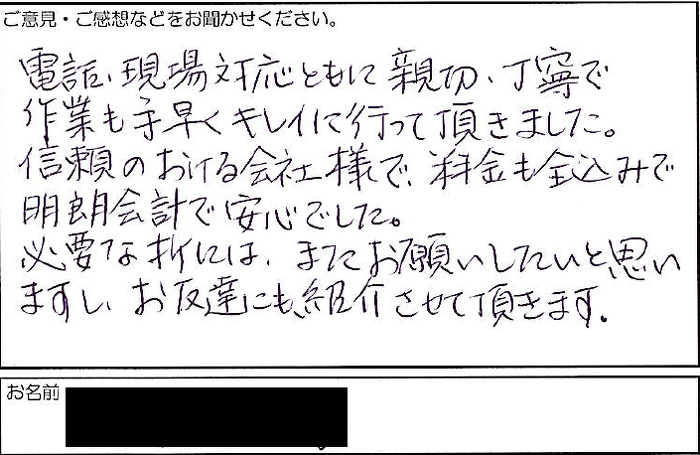 ご意見・ご感想などをお聞かせください。
電話、現場対応ともに親切、丁寧で
作業も手早くキレイに行って頂きました。
信頼のおける会社様で、料金も全込みで
明朗会計で安心でした。
必要な折には、またお願いしたいと思い
ますし、お友達にも紹介させて頂きます。
お名前